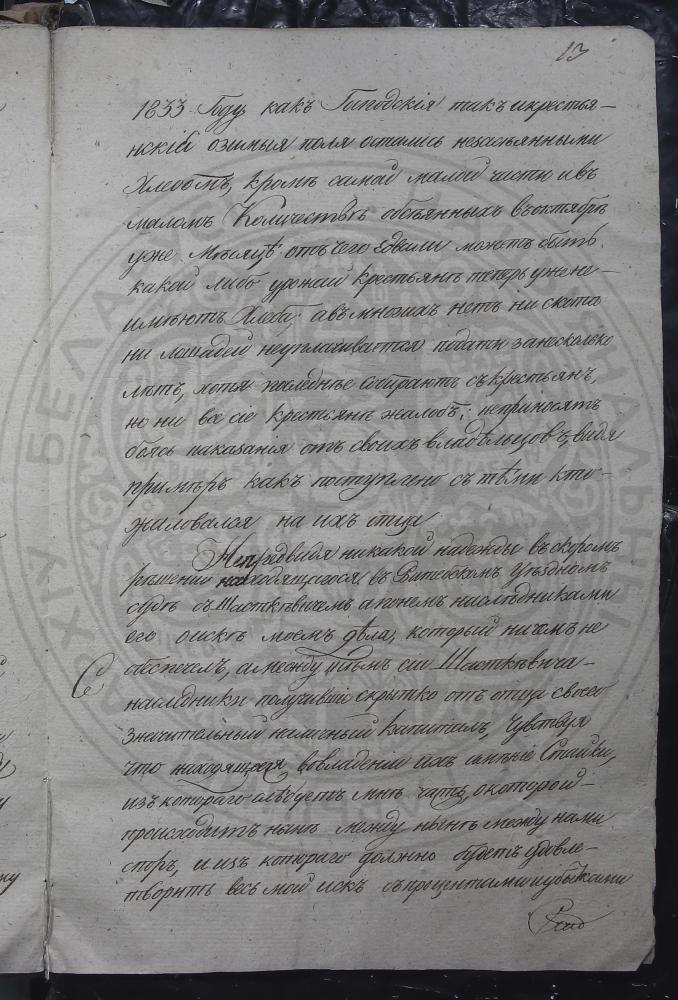 13
1833 Году какъ Господскія такъ икрестья-
нскій озимыя поля остались незасѣянными
Хлебомъ, кромѣ самой малой части ивъ
маломъ Количествѣ обсѣянныхъ въоктябрѣ
уже Мѣсяцѣ отъ чего едвали можетъ быть
какой либо урожай крестьянѣ теперь уже не-
имѣютъ Хлеба, авъмногихъ нетъ ни скота
ни лошадей неуплачивается подати занесколько
лѣтъ, хотя последнѣе собираютъ съкрестьянъ,
но ни все сіе крестьянѣ жалобъ, неприносятъ
боясь наказанія отъ своихъ владѣльцовъ, видя
примѣръ какъ поступлено съ тѣми кто-
жаловался на ихъ отца
Непредвидя никакой надежды въскоромъ
рѣшеніи находящагося въ Витебскомъ Уѣздномъ
судѣ съ апонемъ наслѣдниками
его оискѣ моемъ дѣла, который ничемъ не
обезпечелъ, амежду тѣмъ сіи
наследники получивши скрытко отъ отца своего
значительный наличный капиталъ, Чувствуя
что находящееся вовладеніи ихъ имѣніе Стайки,
изъ котораго слѣдуетъ мнѣ часть, окоторой-
происходитъ нынѣ между нынѣ между нами
споръ, и изъ котораго должно будетъ удовле-
творить весь мой искъ съпроцентами иубытками